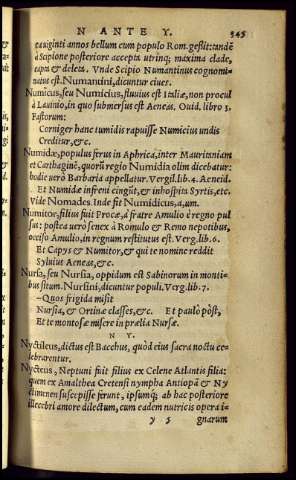 N ANTE Y. 345
gauiginti annos bellum cum populo Rom. gessit: tandē
à Scipione posteriore accepta utrinq; maxima clade,
capta & deleta. Vnde Scipio Numantinus cognomi-
natus est. Numantini, dicuntur ciues.
Numicus, seu Numicius, fluuius est Italiæ, non procul
à Lauinio, in quo submersus est Aeneas. Ouid. libro 3.
Fastorum:
Corniger hanc tumidis rapuisse Numicius undis
Creditur, &c.
Numidæ, populus ferus in Aphrica, inter Mauritaniam
et Carthaginē, quorū regio Numidia olim dicebatur:
hodie uerò Barbaria appellatur. Vergil. lib. 4. Aeneid.
Et Numidæ infreni cingūt, & inhospita Syrtis, etc.
Vide Nomades. Inde fit Numidicus, a, um.
Numitor, filius fuit Procæ, à fratre Amulio è regno pul
sus: postea uerò senex à Romulo & Remo nepotibus,
occiso Amulio, in regnum restitutus est. Verg. lib. 6.
Et Capys & Numitor, & qui te nomine reddit
Syluius Aeneas, &c.
Nursa, seu Nursia, oppidum est Sabinorum in monti-
bus situm. Nursini, dicuntur populi. Verg. lib. 7.
—Quos frigida misit
Nursia, & Ortinæ classes, &c. Et paulò pòst,
Et te montosæ misere in prælia Nursæ.
N Y.
Nyctileus, dictus est Bacchus, quòd eius sacra noctu ce-
lebrarentur.
Nycteus, Neptuni fuit filius ex Celene Atlantis filia:
quem ex Amalthea Cretensi nympha Antiopā & Ny
ctimenen suscepisse ferunt, ipsumq; ab hac posteriore
illecebri amore dilectum, cum eadem nutricis opera i-
y 5 gnarum